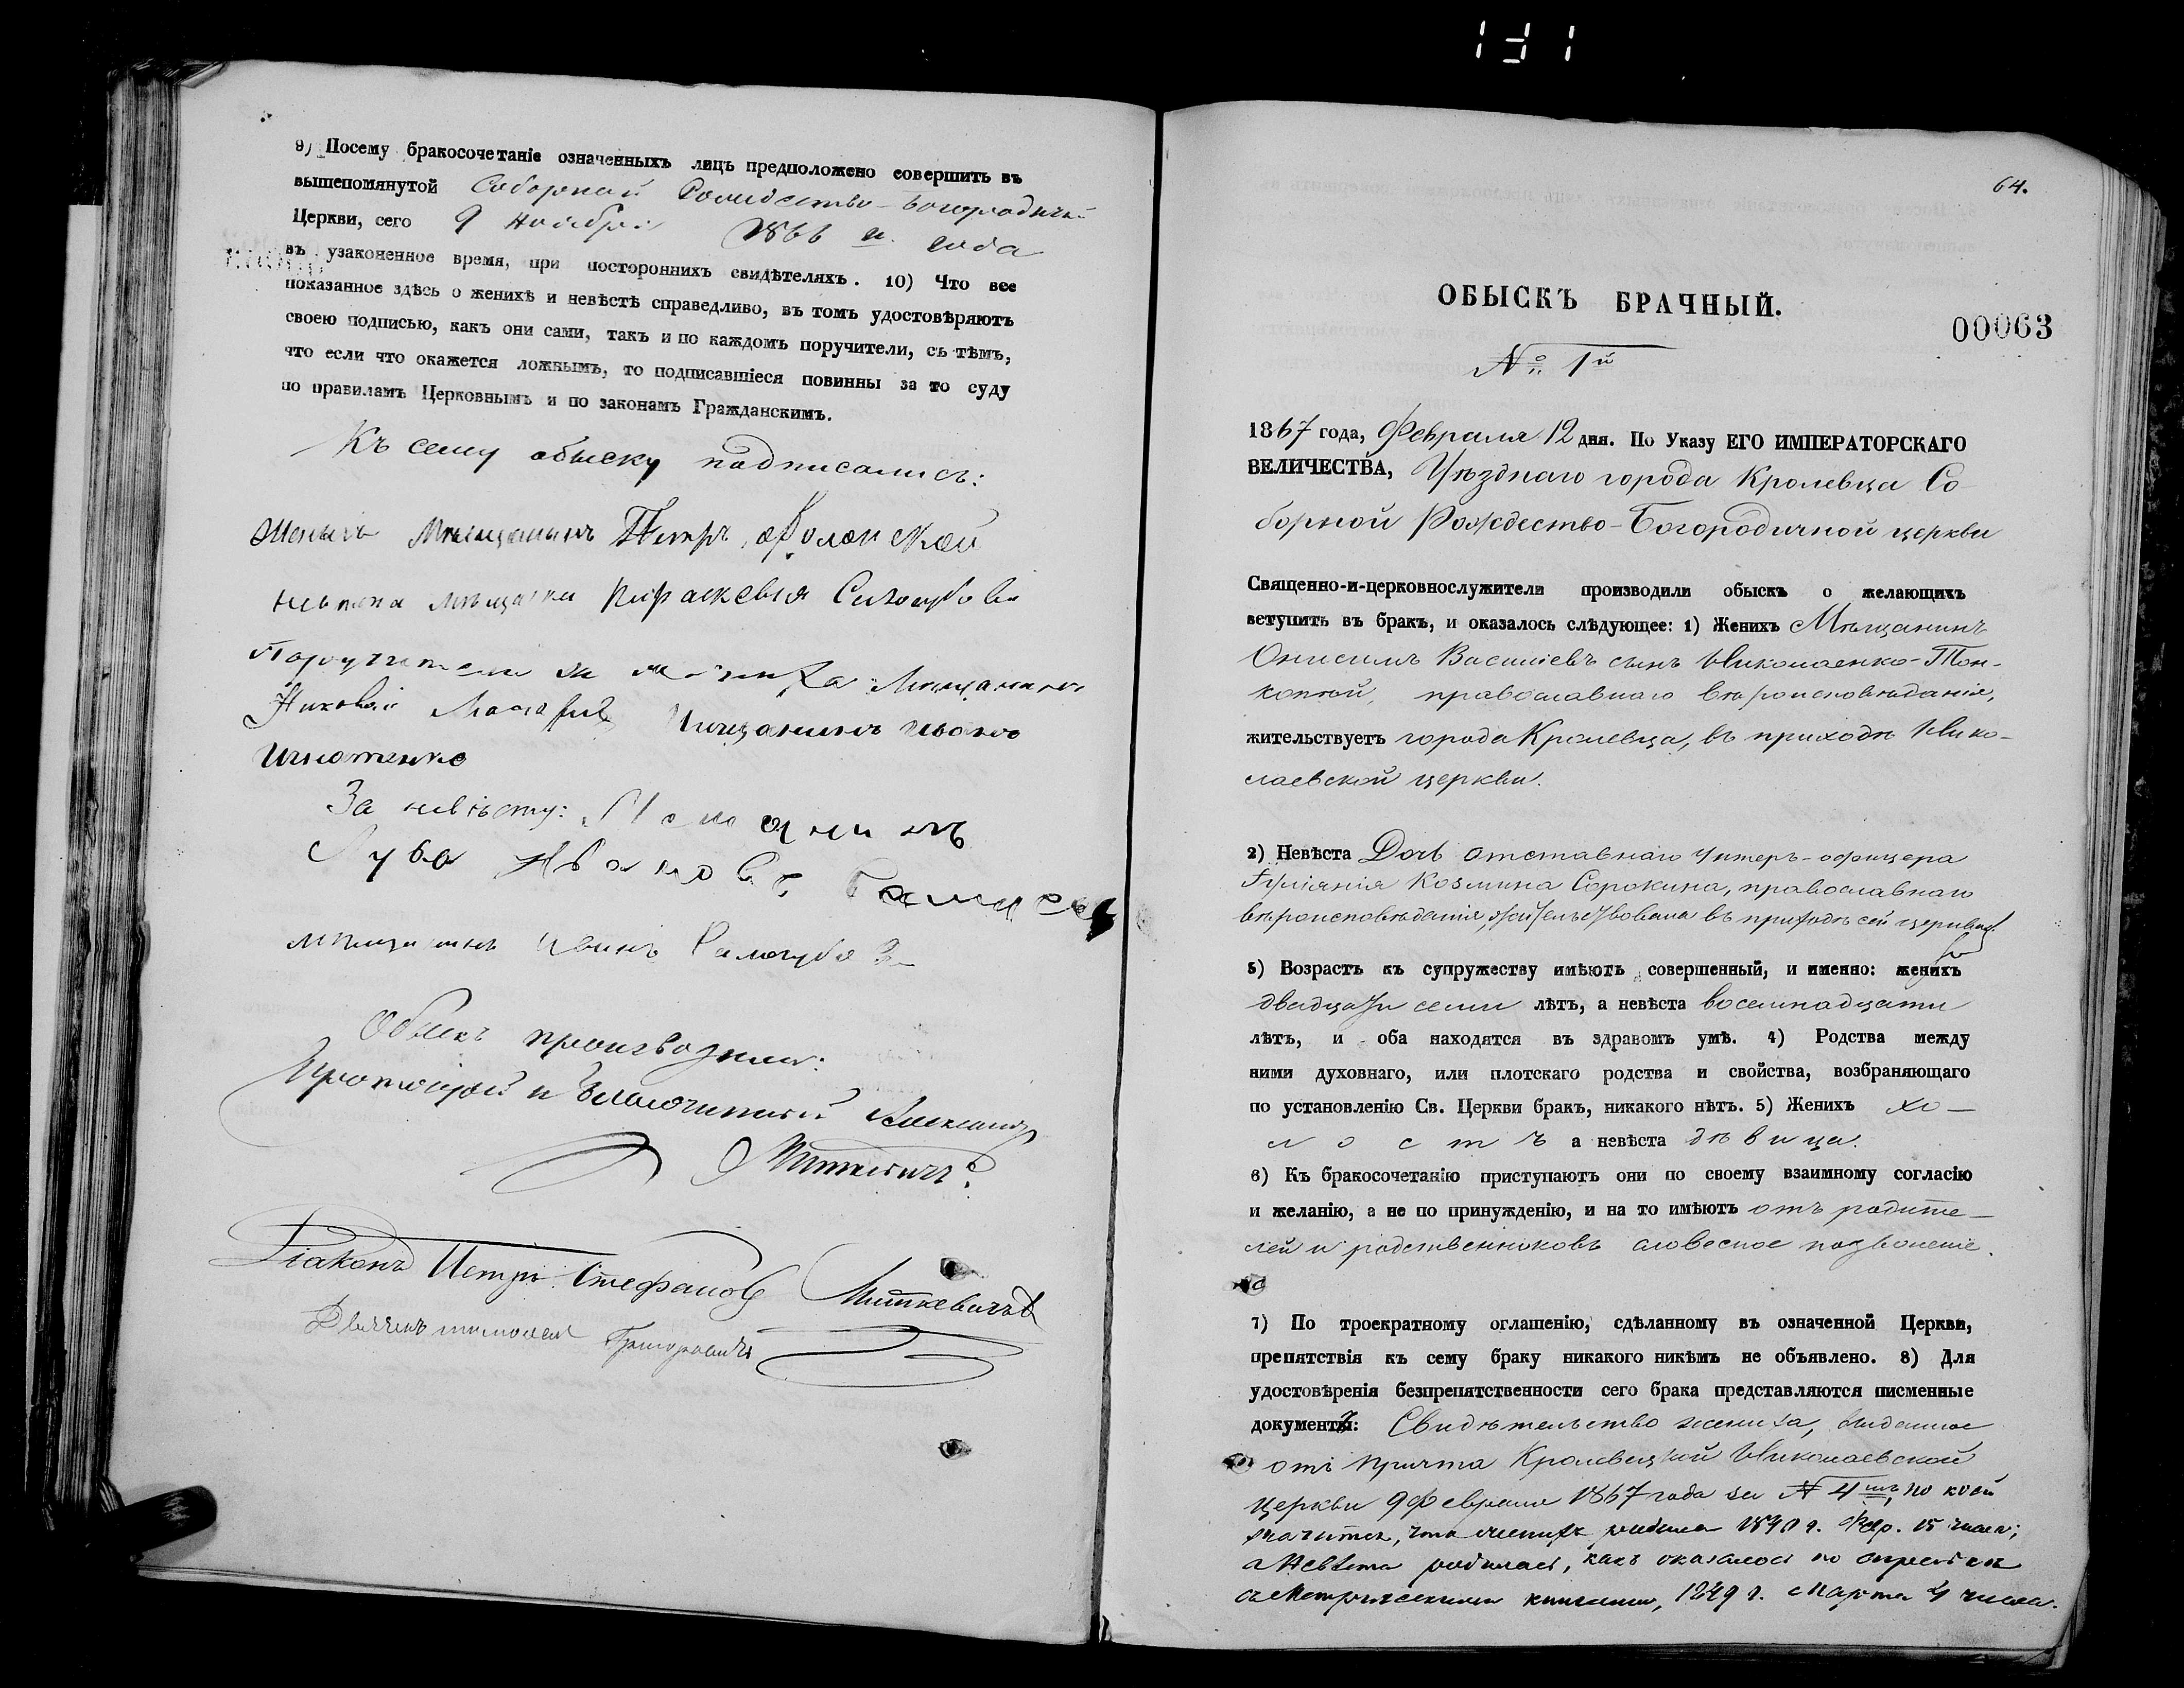 9) Посему бракосочетаніе означенныхъ лицъ предположено совершить въ
вышепомянутой Соборной Рождество-Богородичной
Церкви, сего 9 Ноября 1866 го года
въ узаконенное время, при постороннихъ свидѣтеляхъ. 10) Что все
показанное здѣсь о женихѣ и невѣстѣ справедливо, въ томъ удостовѣряютъ
своею подписью, какъ они сами, такъ и по каждомъ поручители, съ тѣмъ,
что если что окажется ложнымъ, то подписавшіеся повинны за то суду
по правиламъ Церковнымъ и по законамъ Гражданскимъ.
Къ сему обыску подписались:
Женихъ Мѣщанинъ Петръ
невѣста мѣщанка Параскевія
Поручители за жениха Мѣщанинъ
Мѣщанинъ Иванъ
Игнатенко
За невѣсту:
мѣщанинъ Иванъ
Обыскъ производили:
Протоіерей и Благочинный Александръ
Миткевичъ.
Діаконъ Петръ Стефановъ Миткевичъ
Григоровичъ
131
64.
ОБЫСКЪ БРАЧНЫЙ.
00063
№ 1й
1867 года, Февраля 12 дня. По Указу ЕГО ИМПЕРАТОРСКАГО
ВЕЛИЧЕСТВА, Уѣзднаго города Кролевца Со-
борной Рождество-Богородичной церкви
Священно-и-церковнослужители производили обыскъ о желающихъ
вступить въ бракъ, и оказалось слѣдующее: 1) Женихъ Мѣщанинъ
Онисимъ Василіевъ сынъ Николаенко-Тон-
коной, православнаго вѣроисповѣданія,
жительствуетъ города Кролевца, въ приходѣ Нико-
лаевской церкви.
2) Невѣста Дочь отставнаго Унтеръ-офицера
Іуліанія Козмина Сорокина, православнаго
вѣроисповѣданія, жительствовала въ приходѣ сей церкви
3) Возрастъ къ супружеству имѣютъ совершенный, и именно: женихъ
двадцати семи лѣтъ, а невѣста восемнадцати
лѣтъ, и оба находятся въ здравомъ умѣ. 4) Родства между
ними духовнаго, или плотскаго родства и свойства, возбраняющаго
по установленію Св. Церкви бракъ, никакого нѣтъ. 5) Женихъ хо-
лостъ а невѣста дѣвица.
6) Къ бракосочетанію приступаютъ они по своему взаимному согласію
и желанію, а не по принужденію, и на то имѣютъ отъ родите-
лей и родственниковъ словесное позволеніе.
7) По троекратному оглашенію, сдѣланному въ означенной Церкви,
препятствія къ сему браку никакого никѣмъ не объявлено. 8) Для
удостовѣренія безпрепятственности сего брака представляются писменные
документы: Свидѣтельство жениха, выданное
отъ причта Кролевецкой Николаевской
церкви 9 Февраля 1867 года за № 4мъ, по коей
значится, что женихъ родился 1840 г. Фев. 15 числа;
а Невѣста родилась, как оказалось по справкѣ
съ Метрическими книгами, 1849 г. Марта 4 числа.